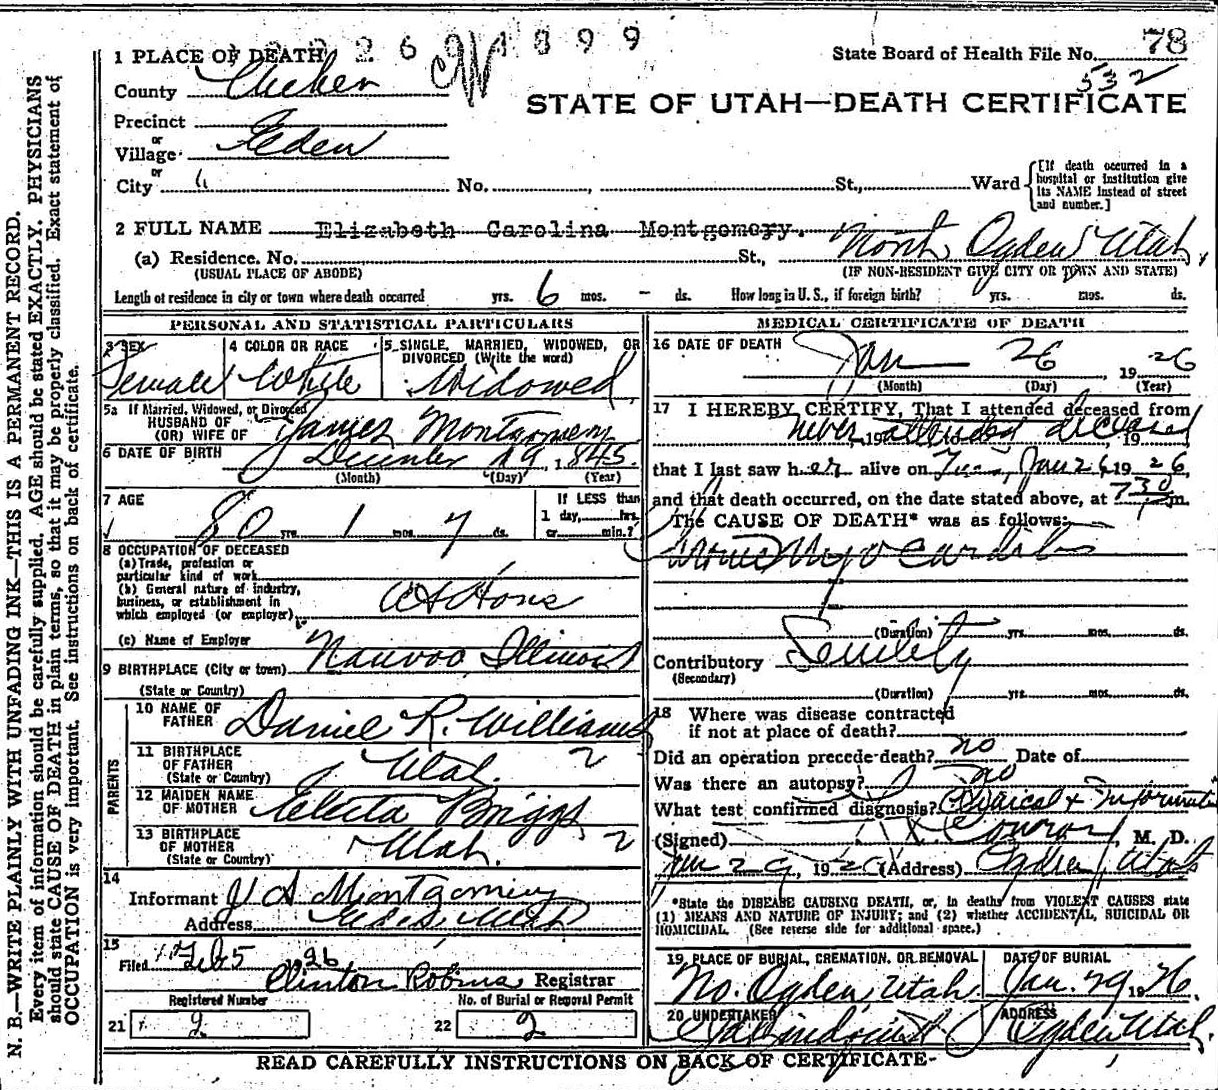 2 6 1 8 9 9
78
1 PLACE OF DEATH
State Board of Health File No.
532
County Weber
STATE OF UTAH—DEATH CERTIFICATE
Precinct
or
Village Eden
or
City "
No. , St., Ward
[If death occurred in a hospital or institution give its NAME instead of street and number.]
2 FULL NAME Elizabeth Carolina Montgomery.
(a) Residence. No. St., North Ogden Utah,
(USUAL PLACE OF ABODE) (IF NON-RESIDENT GIVE CITY OR TOWN AND STATE)
Length of residence in city or town where death occurred yrs. 6 mos. - ds. How long in U. S., if foreign birth? yrs. mos. ds.
PERSONAL AND STATISTICAL PARTICULARS
3 SEX Female
4 COLOR OR RACE White
5 SINGLE, MARRIED, WIDOWED, OR DIVORCED (Write the word) Widowed
5a If Married, Widowed, or Divorced
HUSBAND OF
(OR) WIFE OF James Montgomery
6 DATE OF BIRTH December 19, 1845.
(Month) (Day) (Year)
7 AGE 80 yrs. 1 mos. 7 ds.
If LESS than 1 day, hrs. or min.?
8 OCCUPATION OF DECEASED
(a) Trade, profession or particular kind of work
(b) General nature of industry, business, or establishment in which employed (or employer) At Home
(c) Name of Employer
9 BIRTHPLACE (City or town) Nauvoo Illinois
(State or Country)
PARENTS
10 NAME OF FATHER Daniel R. Williams
11 BIRTHPLACE OF FATHER (State or Country) Utah. ?
12 MAIDEN NAME OF MOTHER Electa Briggs
13 BIRTHPLACE OF MOTHER (State or Country) Utah. ?
14
Informant Montgomery
Address Utah
15
Filed Feb 5 26
Clinton Robins Registrar
Registered Number
21 2
No. of Burial or Removal Permit
22 2
MEDICAL CERTIFICATE OF DEATH
16 DATE OF DEATH Jan 26, 1926
(Month) (Day) (Year)
17 I HEREBY CERTIFY, That I attended deceased from
never, 19 attended deceased 19
that I last saw h er alive on Jan 26 19 26
and that death occurred, on the date stated above, at 730 m.
The CAUSE OF DEATH* was as follows:
Chronic Myocarditis
(Duration) yrs. mos. ds.
Contributory Senility
(Secondary)
(Duration) yrs. mos. ds.
18 Where was disease contracted
if not at place of death?
Did an operation precede death? no Date of
Was there an autopsy? no
What test confirmed diagnosis? Clinical + Information
(Signed) Conroy, M. D.
Jan 29, 1926 (Address) Ogden, Utah
*State the DISEASE CAUSING DEATH, or, in deaths from VIOLENT CAUSES state
(1) MEANS AND NATURE OF INJURY; and (2) whether ACCIDENTAL, SUICIDAL OR
HOMICIDAL. (See reverse side for additional space.)
19 PLACE OF BURIAL, CREMATION, OR REMOVAL No. Ogden, Utah
DATE OF BURIAL Jan. 29 1926.
20 UNDERTAKER
ADDRESS Ogden Utah.
READ CAREFULLY INSTRUCTIONS ON BACK OF CERTIFICATE-
N. B.—WRITE PLAINLY WITH UNFADING INK—THIS IS A PERMANENT RECORD.
Every item of information should be carefully supplied. AGE should be stated EXACTLY. PHYSICIANS
should state CAUSE OF DEATH in plain terms, so that it may be properly classified. Exact statement of
OCCUPATION is very important. See instructions on back of certificate.